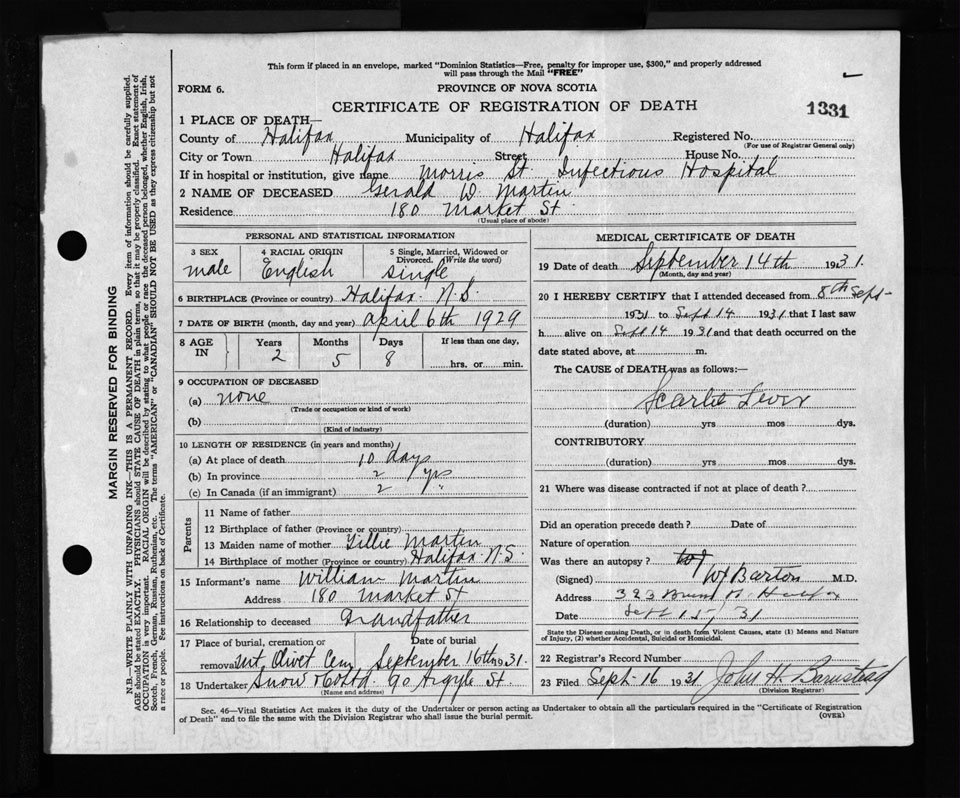 This form if placed in an envelope, marked "Dominion Statistics—Free, penalty for improper use, $300," and properly addressed
will pass through the Mail "FREE"
FORM 6.
PROVINCE OF NOVA SCOTIA
CERTIFICATE OF REGISTRATION OF DEATH
1331
1 PLACE OF DEATH—
County of Halifax Municipality of Halifax Registered No.
(For use of Registrar General only)
City or Town Halifax Street House No.
If in hospital or institution, give name Morris St. Infectious Hospital
2 NAME OF DECEASED Gerald W. Martin
Residence 180 Market St.
(Usual place of abode)
MARGIN RESERVED FOR BINDING
N.B.—WRITE PLAINLY WITH UNFADING INK—THIS IS A PERMANENT RECORD. Every item of information should be carefully supplied.
AGE should be stated EXACTLY. PHYSICIANS should STATE CAUSE OF DEATH in plain terms, so that it may be properly classified. Exact statement of
OCCUPATION is very important. RACIAL ORIGIN will be described by stating to what people or race the deceased person belonged, whether English, Irish,
Scotch, French, German, Russian, Ruthenian, etc. The terms "AMERICAN" or "CANADIAN" SHOULD NOT BE USED as they express citizenship but not
a race or people. See instructions on back of Certificate.
PERSONAL AND STATISTICAL INFORMATION
3 SEX
male
4 RACIAL ORIGIN
English
5 Single, Married, Widowed or
Divorced. (Write the word)
single
6 BIRTHPLACE (Province or country) Halifax N.S.
7 DATE OF BIRTH (month, day and year) april 6th 1929
8 AGE
IN
Years Months Days If less than one day,
2 5 8 hrs. or min.
9 OCCUPATION OF DECEASED
(a) none
(Trade or occupation or kind of work)
(b)
(Kind of industry)
10 LENGTH OF RESIDENCE (in years and months)
(a) At place of death 10 days
(b) In province 2 yrs
(c) In Canada (if an immigrant) 2 "
Parents
11 Name of father
12 Birthplace of father (Province or country)
13 Maiden name of mother Martin
14 Birthplace of mother (Province or country) Halifax N.S.
15 Informant's name William Martin
Address 180 Market St
16 Relationship to deceased Grandfather
17 Place of burial, cremation or
Date of burial
removal Mt. Olivet Cem September 16th 1931.
18 Undertaker Snow & Co Ltd. 90 Argyle St.
(Name and address)
MEDICAL CERTIFICATE OF DEATH
19 Date of death September 14th 1931.
(Month, day and year)
20 I HEREBY CERTIFY that I attended deceased from 8th Sept-
1931 to Sept 14 1931 that I last saw
h alive on Sept 14 1931 and that death occurred on
date stated above, at m.
The CAUSE of DEATH was as follows:—
Scarlet Fever
(duration) yrs mos dys.
CONTRIBUTORY
(duration) yrs mos dys.
21 Where was disease contracted if not at place of death?
Did an operation precede death? Date of
Nature of operation
Was there an autopsy?
(Signed) W Barton M.D.
Address 323 Halifax
Date Sept 15/31
State the Disease causing Death, or in death from Violent Causes, state (1) Means and Nature
of Injury, (2) whether Accidental, Suicidal or Homicidal.
22 Registrar's Record Number
23 Filed Sept 16 1931 John H. Barnstead
(Division Registrar)
Sec. 46—Vital Statistics Act makes it the duty of the Undertaker or person acting as Undertaker to obtain all the particulars required in the "Certificate of Registration
of Death" and to file the same with the Division Registrar who shall issue the burial permit.
(OVER)